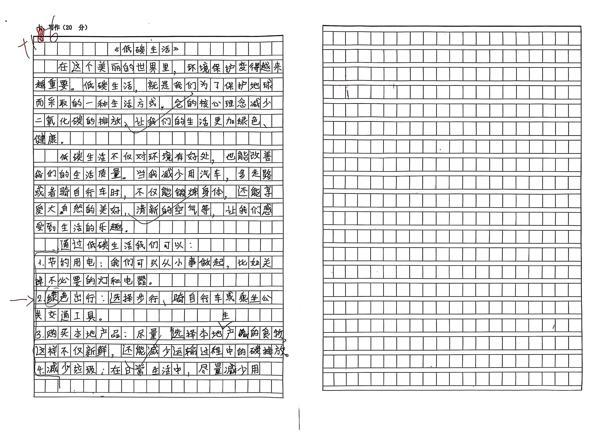 七、写作(20 分)
《低碳生活》
在这个美丽的世界里，环境保护变得越来
越重要。低碳生活，就是我们为了保护地球
而采取的一种生活方式。它的核心理念减少
二氧化碳的排放，让我们的生活更加绿色、
健康。
低碳生活不仅对环境有好处，也能改善
我们的生活质量。当我减少用汽车，多走路
或者骑自行车时，不仅能锻炼身体，还能享
受大自然的美好，清新的空气等，让我们感
受到生活的乐趣。
通过低碳生活我们可以：
1.节约用电：我们可以从小事做起，比如关
掉不必要的灯和电器。
2.绿色出行：选择步行、骑自行车或乘坐公
共交通工具。
3.购买本地产品：尽量选择本地产的食物，
这样不仅新鲜，还能减少运输过程中的碳排放。
4.减少垃圾：在日常生活中，尽量减少用